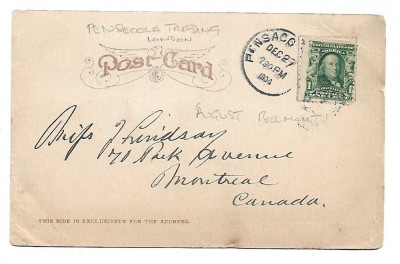 PENSECOLA TRADING
LONDON
Post Card
PENSACO
DEC 27
7 30 PM
1904
1
1
AUGUST Belmont
Miss J Lindsay
70 Park Avenue
Montreal
Canada.
THIS SIDE IS EXCLUSIVELY FOR THE ADDRESS.